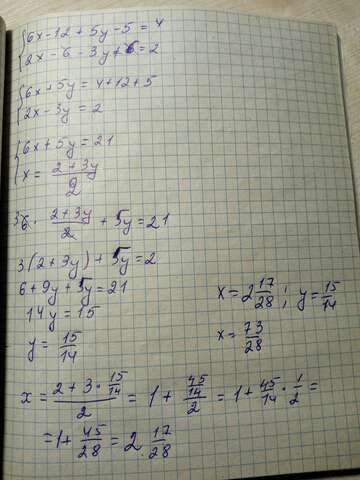 6x-12+5y-5=4
2x-6-3y+6=2
6x+5y=4+12+5
2x-3y=2
6x+5y=21
x=(2+3y)/2
³6·(2+3y)/2+5y=21
3(2+3y)+5y=2
6+9y+5y=21
14y=15
y=15/14
x=2 17/28; y=15/14
x=73/28
x=(2+3·15/14)/2=1+(45/14)/2=1+45/14·1/2=
=1+45/28=2 17/28